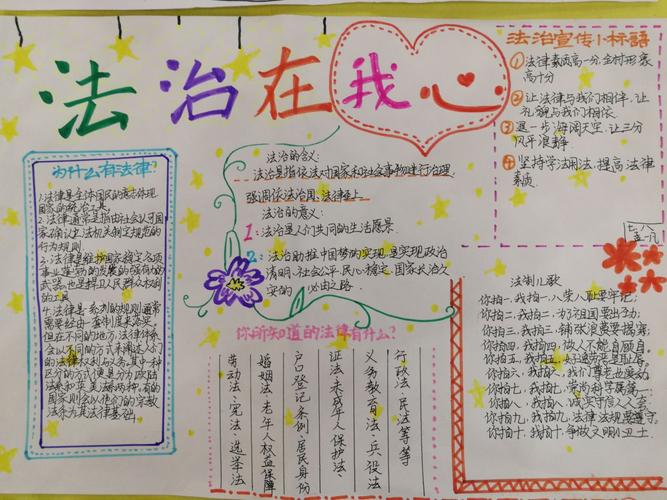 法治在我心
法治宣传小标语
①法律素质高一分,全村形象
高十分
②让法律与我们相伴,让
礼貌与我们相依
③退一步海阔天空,让三分
风平浪静
④坚持学法用法,提高法律
素质.
七、八
孟一凡
为什么有法律?
1.法律是全体国民的意志体现
国家的统治工具
2.法律通常是指由社会认可国
家确认立法机关制定规范的
行为规则
3.法律是维护国家稳定各项
事业蓬勃的发展的强有力的
武器,也是捍卫人民群众权利
的工具
4.法律是一系列的规则通常
需要经由一套制度来落实,
但在不同的地方,法律体系
会以不同的方式来阐述人们
的法律权利与义务,其中一种
区分的方式便是分为欧陆
法系和英美法系两种,有的
国家则会以他们的宗教
法条为其法律基础.
法治的含义:
法治是指依法对国家和社会事物进行治理
强调依法治国、法律至上
法治的意义:
1:法治是人们共同的生活愿景.
2:法治助推中国梦的实现,是实现政治
清明、社会公平、民心稳定、国家长治久
安的必由之路.
你所知道的法律有什么?
行政法、民法等等
义务教育法、兵役法
证法、未成年人保护法、
户口登记条例、居民身份
婚姻法、老年人权益保障
劳动法、宪法、选举法
法制儿歌
你拍一,我拍一,八荣八耻要牢记;
你拍二,我拍二,为了祖国要出力;
你拍三,我拍三,铺张浪费要提穿;
你拍四,我拍四,做人不能自顾自.
你拍五,我拍五,好逸恶劳是耻辱.
你拍六,我拍六,我们尊老也爱幼.
你拍七,我拍七,崇尚科学属第一.
你拍八,我拍八,诚实守信人人夸.
你拍九,我拍九,法律法规要遵守.
你拍十,我拍十,争做文明小卫士.